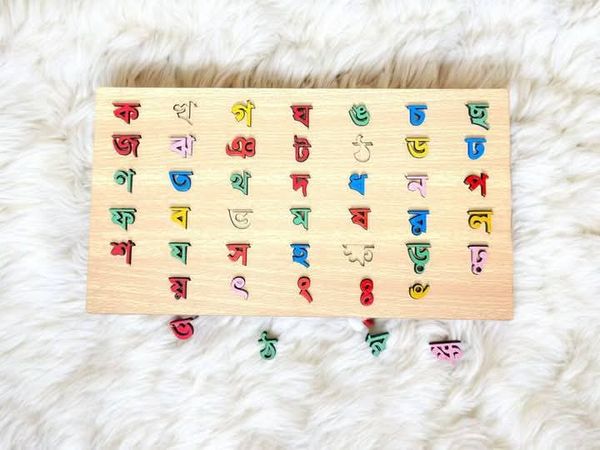 ক খ গ ঘ ঙ চ ছ
জ ঝ ঞ ট ঠ ড ঢ
ণ ত থ দ ধ ন প
ফ ব ভ ম ষ র ল
শ য স হ ক্ষ ড় ঢ়
য় ৎ ং ঃ
ভ ঠ খ ক্ষ